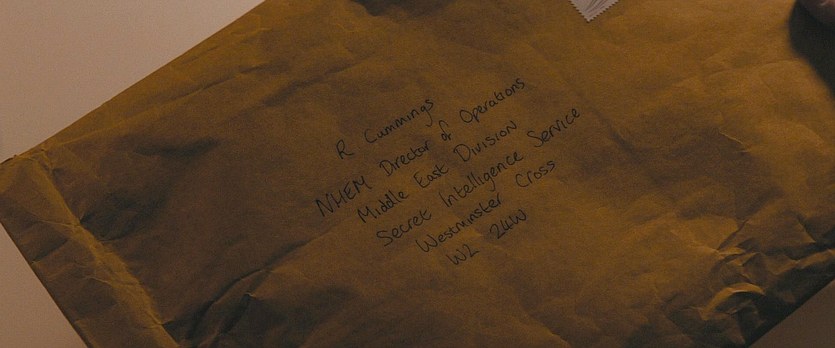 R Cummings
NHEM Director of Operations
Middle East Division
Secret Intelligence Service
Westminster Cross
W2 24W